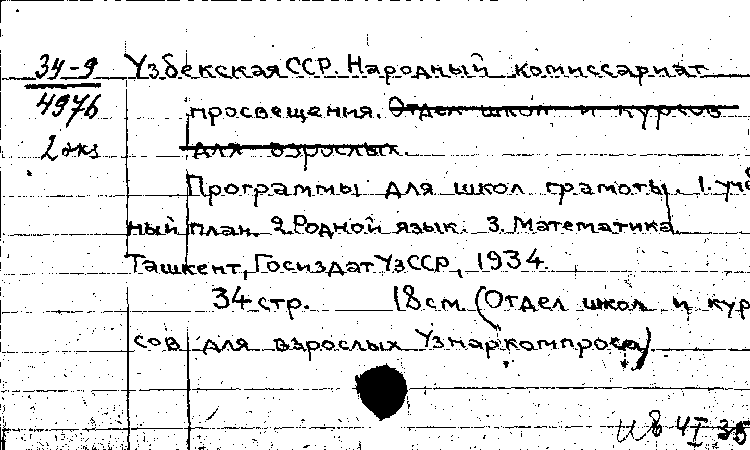 34-9 Узбекская ССР. Народный комиссариат
4976 просвещения. Отдел школ и курсов
2 экз для взрослых.
Программы для школ грамоты. 1. Учеб
ный план. 2. Родной язык. 3. Математика
Ташкент, Госиздат УзССР, 1934.
34 стр. 18 см. (Отдел школ и кур
сов для взрослых Узнаркомпроса)